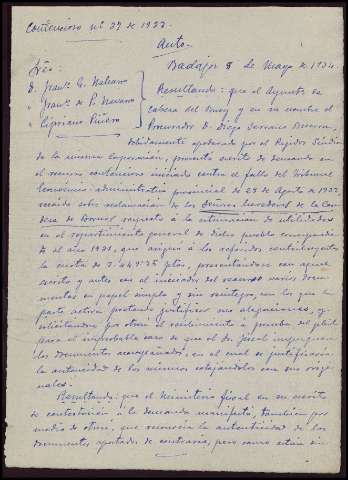 Contencioso nº 37 de 1933.
Auto.
Badajoz 8 de Mayo de 1934.
Sres.
D. Franco. G. Naharro
" Franco. de P. Navarro
" Cipriano Piñero
Resultando: que el Aynto de
Cabeza del Buey y en su nombre el
Procurador D. Diego Serrano Becerra,
debidamente apoderado por el Regidor Síndico
de la misma Corporación, presentó escrito de demanda en
el recurso contencioso iniciado contra el fallo del Tribunal
Económico-administrativo provincial de 28 de Agosto de 1933
recaído sobre reclamación de los Señores herederos de la Con
desa de Bornos respecto a la estimación de utilidades
en el repartimiento general de dicho pueblo correspondien
te al año 1931, que asignó a los referidos contribuyentes
la cuota de 7.449'35 ptas, presentándose con aquel
escrito y antes con el iniciador del recurso varios docu
mentos en papel simple y sin reintegro, con los que la
parte actora pretende justificar sus alegaciones, y
solicitándose por otrosí el recibimiento a prueba del pleito
para el improbable caso de que el Sr. Fiscal impugnara
los documentos acompañados, en el cual se justificaría
la autenticidad de los mismos cotejándolos con sus origi
nales.
Resultando: que el Ministerio fiscal en su escrito
de contestación a la demanda manifestó, también por
medio de otrosí, que reconocía la autenticidad de los
documentos aportados de contrario, pero como están sin